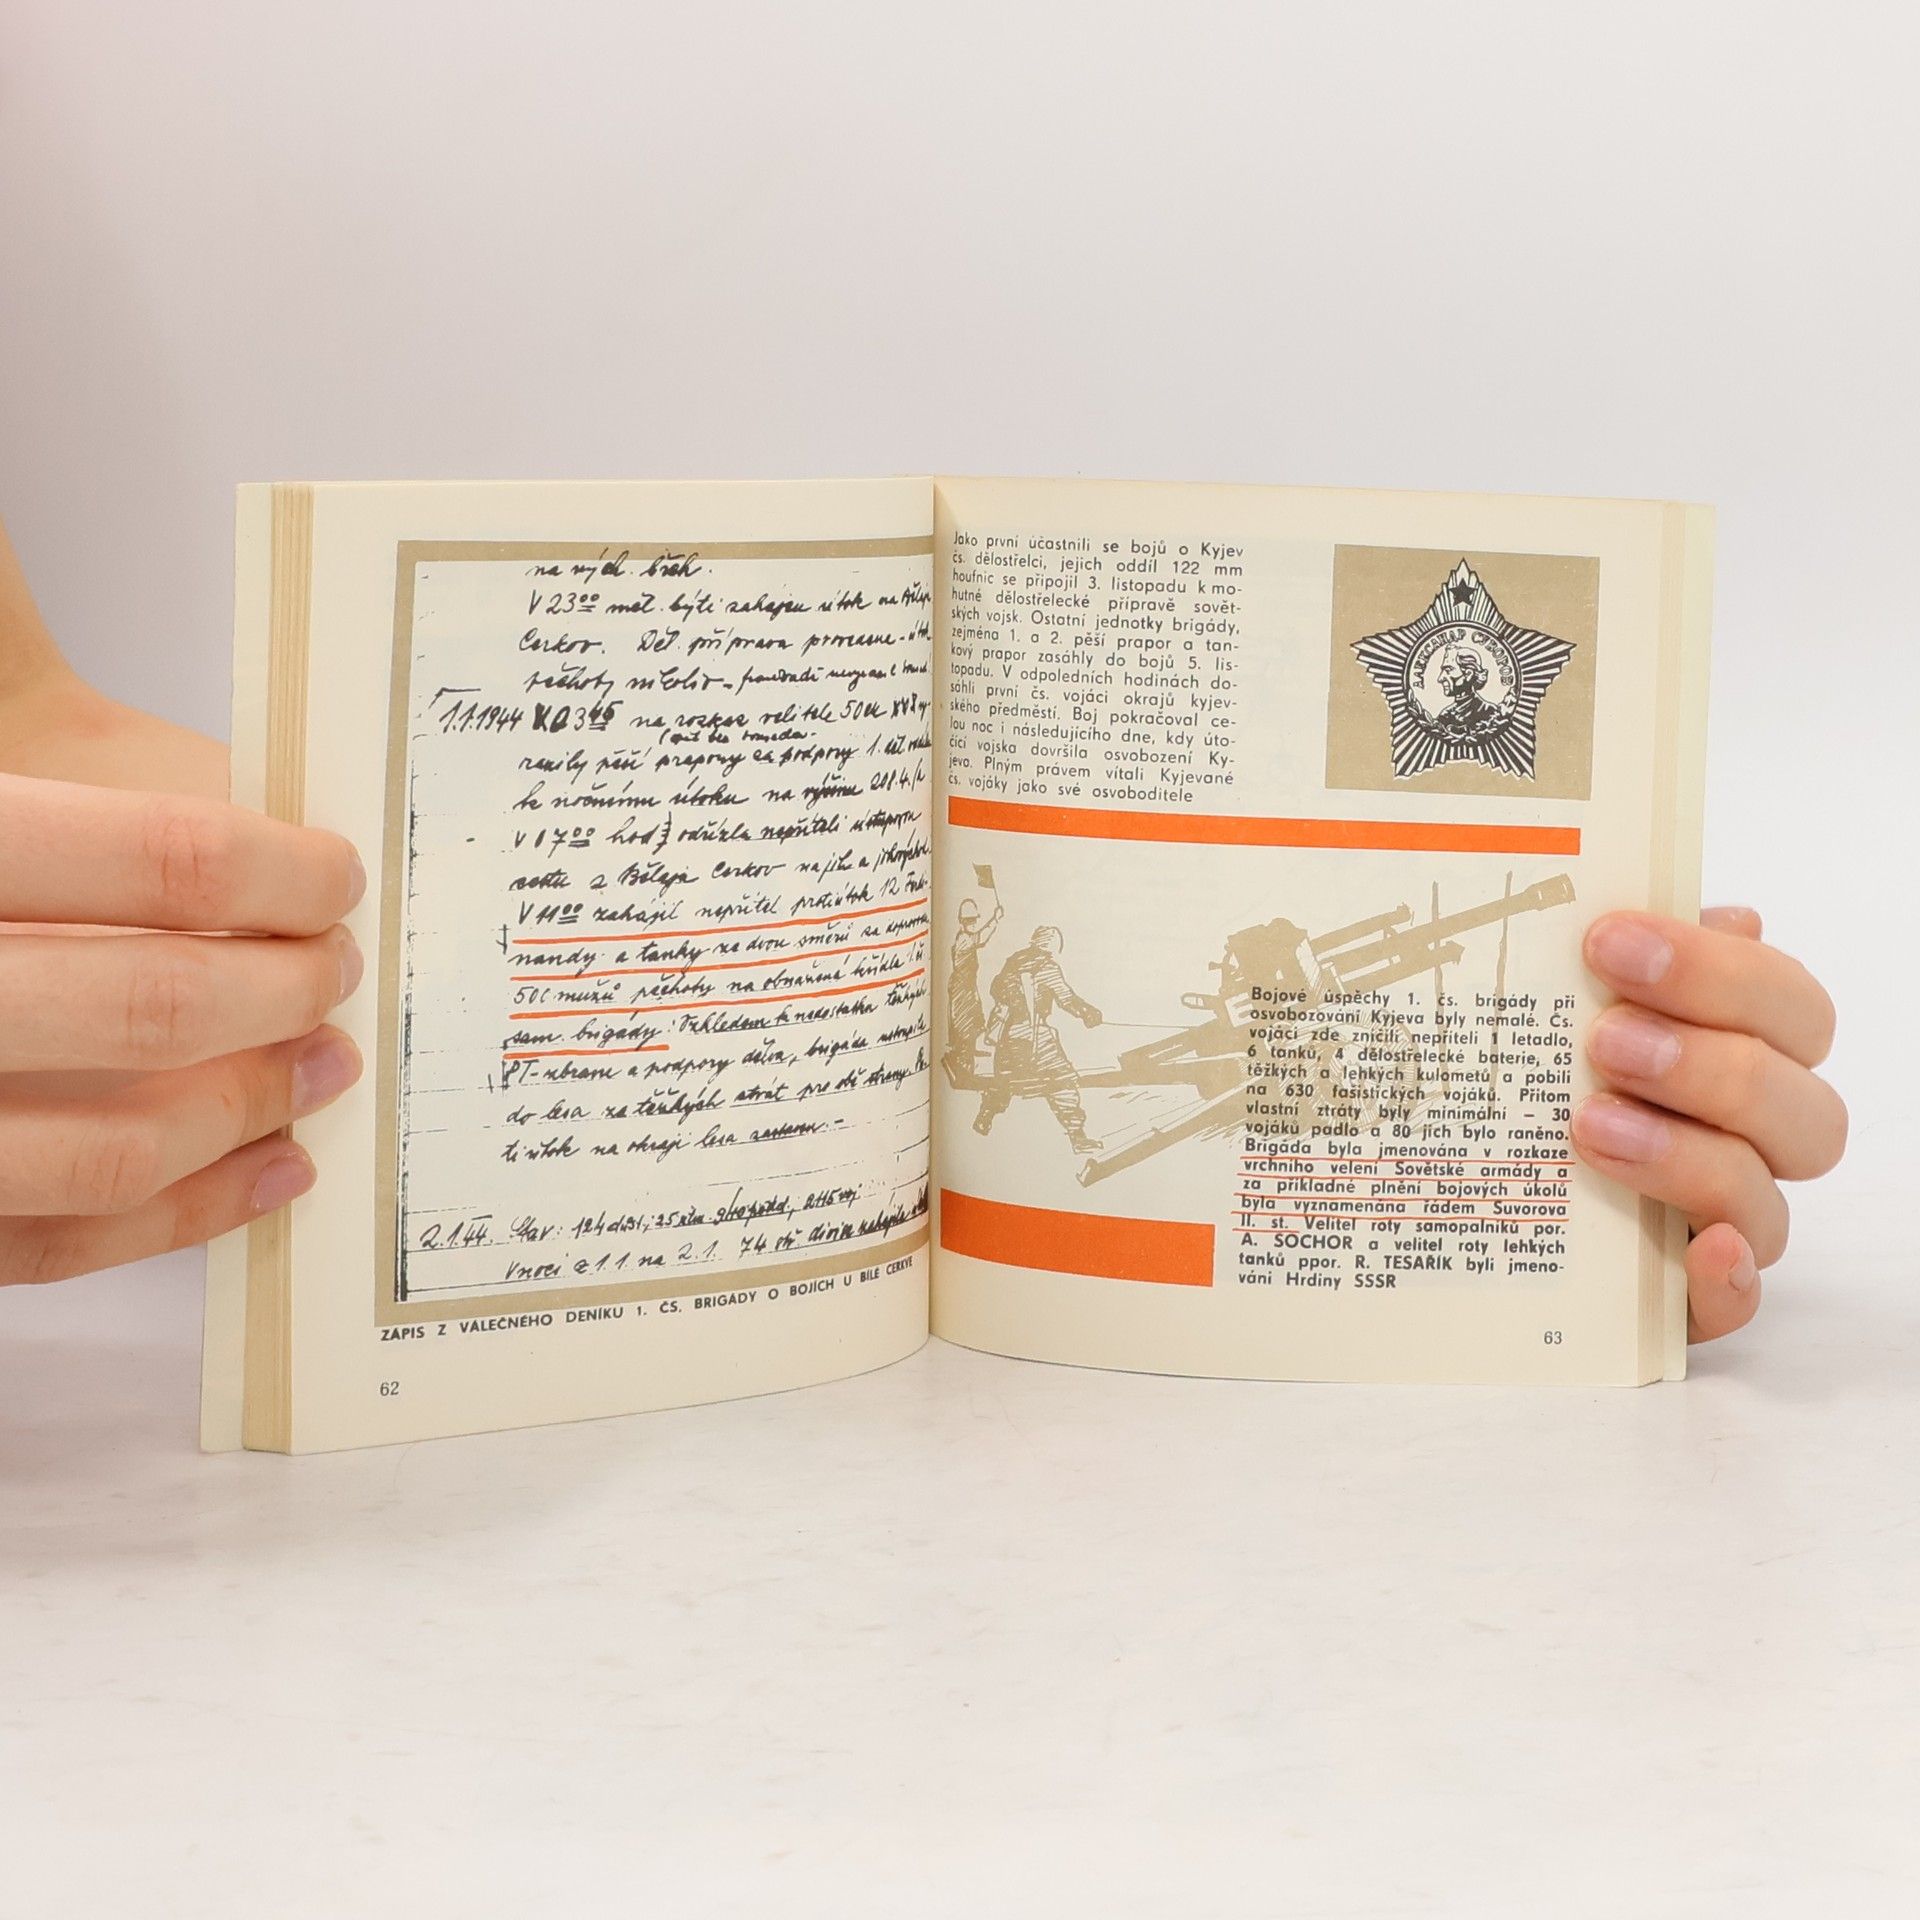 na vých. břeh.
V 23⁰⁰ měl býti zahájen útok na
Cerkov. Děl. příprava provedena -
pěchoty nebylo -
1.1.1944 V 03⁴⁵ na rozkaz velitele 50
(opět bez souseda -
razily pěší prapory za podpory 1. děl.
k nočnímu útoku na výšinu 208.4.
V 07⁰⁰ hod odřízla nepříteli ústupovou
cestu z Bělaja Cerkov na jih a
V 11⁰⁰ zahájil nepřítel protiútok 12 Ferdi-
nandy a tanky ze dvou směrů za doprovodu
500 mužů pěchoty na obnažená křídla 1. čs.
sam. brigády. Vzhledem k nedostatku těžkých
PT-zbraní a podpory děl. brigáda
do lesa za těžkých ztrát pro obě strany.
ti útok na okraji lesa zastaven. -
2.1.44. Stav: 124 důst., 2115 voj
V noci z 1.1 na 2.1. 74 divize zahájila
ZÁPIS Z VÁLEČNÉHO DENÍKU 1. ČS. BRIGÁDY O BOJÍCH U BÍLÉ CERKVE
62
Jako první účastnili se bojů o Kyjev
čs. dělostřelci, jejich oddíl 122 mm
houfnic se připojil 3. listopadu k mo-
hutné dělostřelecké přípravě sovět-
ských vojsk. Ostatní jednotky brigády,
zejména 1. a 2. pěší prapor a tan-
kový prapor zasáhly do bojů 5. lis-
topadu. V odpoledních hodinách do-
sáhli první čs. vojáci okrajů kyjev-
ského předměstí. Boj pokračoval ce-
lou noc i následujícího dne, kdy úto-
čící vojska dovršila osvobození Ky-
jeva. Plným právem vítali Kyjevané
čs. vojáky jako své osvoboditele
АЛЕКСАНДР СУВОРОВ
Bojové úspěchy 1. čs. brigády při
osvobozování Kyjeva byly nemalé. Čs.
vojáci zde zničili nepříteli 1 letadlo,
6 tanků, 4 dělostřelecké baterie, 65
těžkých a lehkých kulometů a pobili
na 630 fašistických vojáků. Přitom
vlastní ztráty byly minimální – 30
vojáků padlo a 80 jich bylo raněno.
Brigáda byla jmenována v rozkaze
vrchního velení Sovětské armády a
za příkladné plnění bojových úkolů
byla vyznamenána řádem Suvorova
II. st. Velitel roty samopalníků por.
A. SOCHOR a velitel roty lehkých
tanků ppor. R. TESAŘÍK byli jmeno-
váni Hrdiny SSSR
63